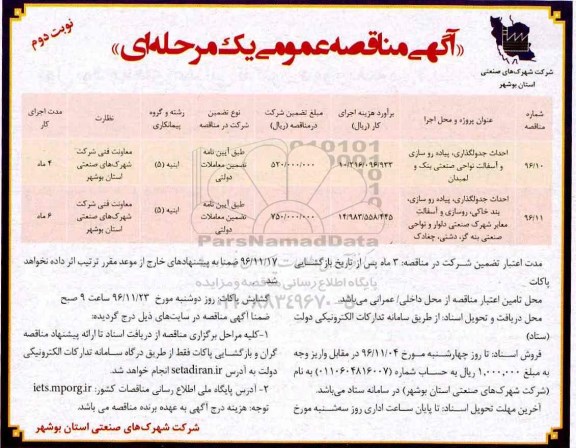 نوبت دوم
«آگهی مناقصه عمومی یک مرحله‌ای»
شرکت شهرک‌های صنعتی
استان بوشهر
شماره مناقصه
عنوان پروژه و محل اجرا
برآورد هزینه اجرای کار (ریال)
مبلغ تضمین شرکت درمناقصه (ریال)
نوع تضمین شرکت در مناقصه
رشته و گروه پیمانکاری
نظارت
مدت اجرای کار
۹۶/۱۰
احداث جدولگذاری، پیاده رو سازی و آسفالت نواحی صنعتی بنک و لمبدان
۱۰/۳۱۶/۰۹۶/۹۳۳
۵۲۰/۰۰۰/۰۰۰
طبق آیین نامه تضمین معاملات دولتی
ابنیه (۵)
معاونت فنی شرکت شهرک‌های صنعتی استان بوشهر
۴ ماه
۹۶/۱۱
احداث جدولگذاری، پیاده رو سازی، بند خاکی، روسازی و آسفالت معابر شهرک صنعتی دلوار و نواحی صنعتی بنه گز، دشتی، چغادک
۱۴/۹۸۳/۵۵۸/۴۴۵
۷۵۰/۰۰۰/۰۰۰
طبق آیین نامه تضمین معاملات دولتی
ابنیه (۵)
معاونت فنی شرکت شهرک‌های صنعتی استان بوشهر
۶ ماه
ParsNamadData
پایگاه اطلاع رسانی مناقصه و مزایده
مدت اعتبار تضمین شرکت در مناقصه: ۳ ماه پس از تاریخ بازگشایی
پاکات
محل تامین اعتبار مناقصه از محل داخلی/ عمرانی می‌باشد.
محل دریافت و تحویل اسناد: از طریق سامانه تدارکات الکترونیکی دولت
(ستاد)
فروش اسناد: تا روز چهارشنبه مورخ ۹۶/۱۱/۰۴ در مقابل واریز وجه
به مبلغ ۱,۰۰۰,۰۰۰ ریال به حساب شماره (۰۱۱۰۶۰۴۸۱۶۰۰۷) به نام
(شرکت شهرک‌های صنعتی استان بوشهر) در سامانه ستاد می‌باشد.
آخرین مهلت تحویل اسناد: تا پایان ساعت اداری روز سه‌شنبه مورخ
۹۶/۱۱/۱۷ ضمنا به پیشنهادهای خارج از موعد مقرر ترتیب اثر داده نخواهد
شد.
گشایش پاکات: روز دوشنبه مورخ ۹۶/۱۱/۲۳ ساعت ۹ صبح
ضمنا آگهی مناقصه در سایت‌های ذیل درج گردیده:
۱-کلیه مراحل برگزاری مناقصه از دریافت اسناد تا ارائه پیشنهاد مناقصه
گران و بازگشایی پاکات فقط از طریق درگاه سامانه تدارکات الکترونیکی
دولت به آدرس setadiran.ir انجام خواهد شد.
۲- آدرس پایگاه ملی اطلاع رسانی مناقصات کشور: iets.mporg.ir
توجه: هزینه درج آگهی به عهده برنده مناقصه می باشد.
شرکت شهرک‌های صنعتی استان بوشهر